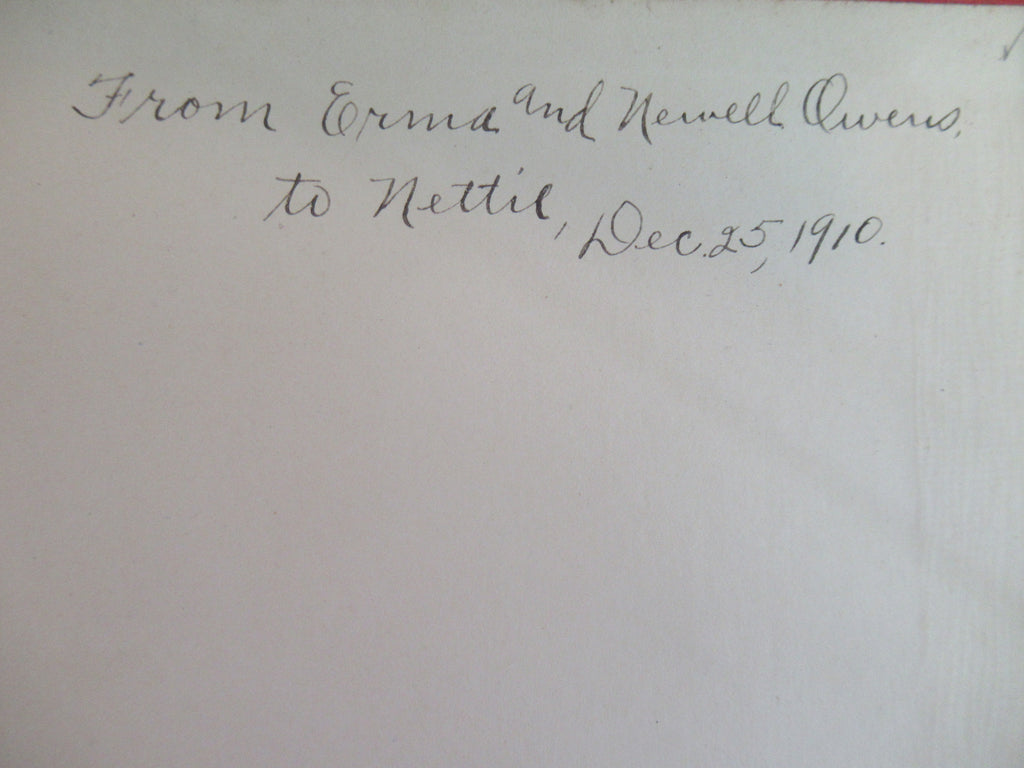 From Erma and Newell Owens,
to Nettie, Dec. 25, 1910.